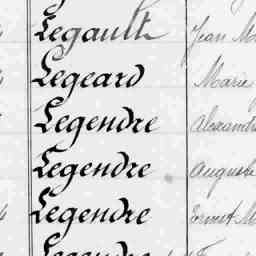 Legault Jean
Legeard Marie
Legendre Alexandre
Legendre Auguste
Legendre Ernest M
Legendre